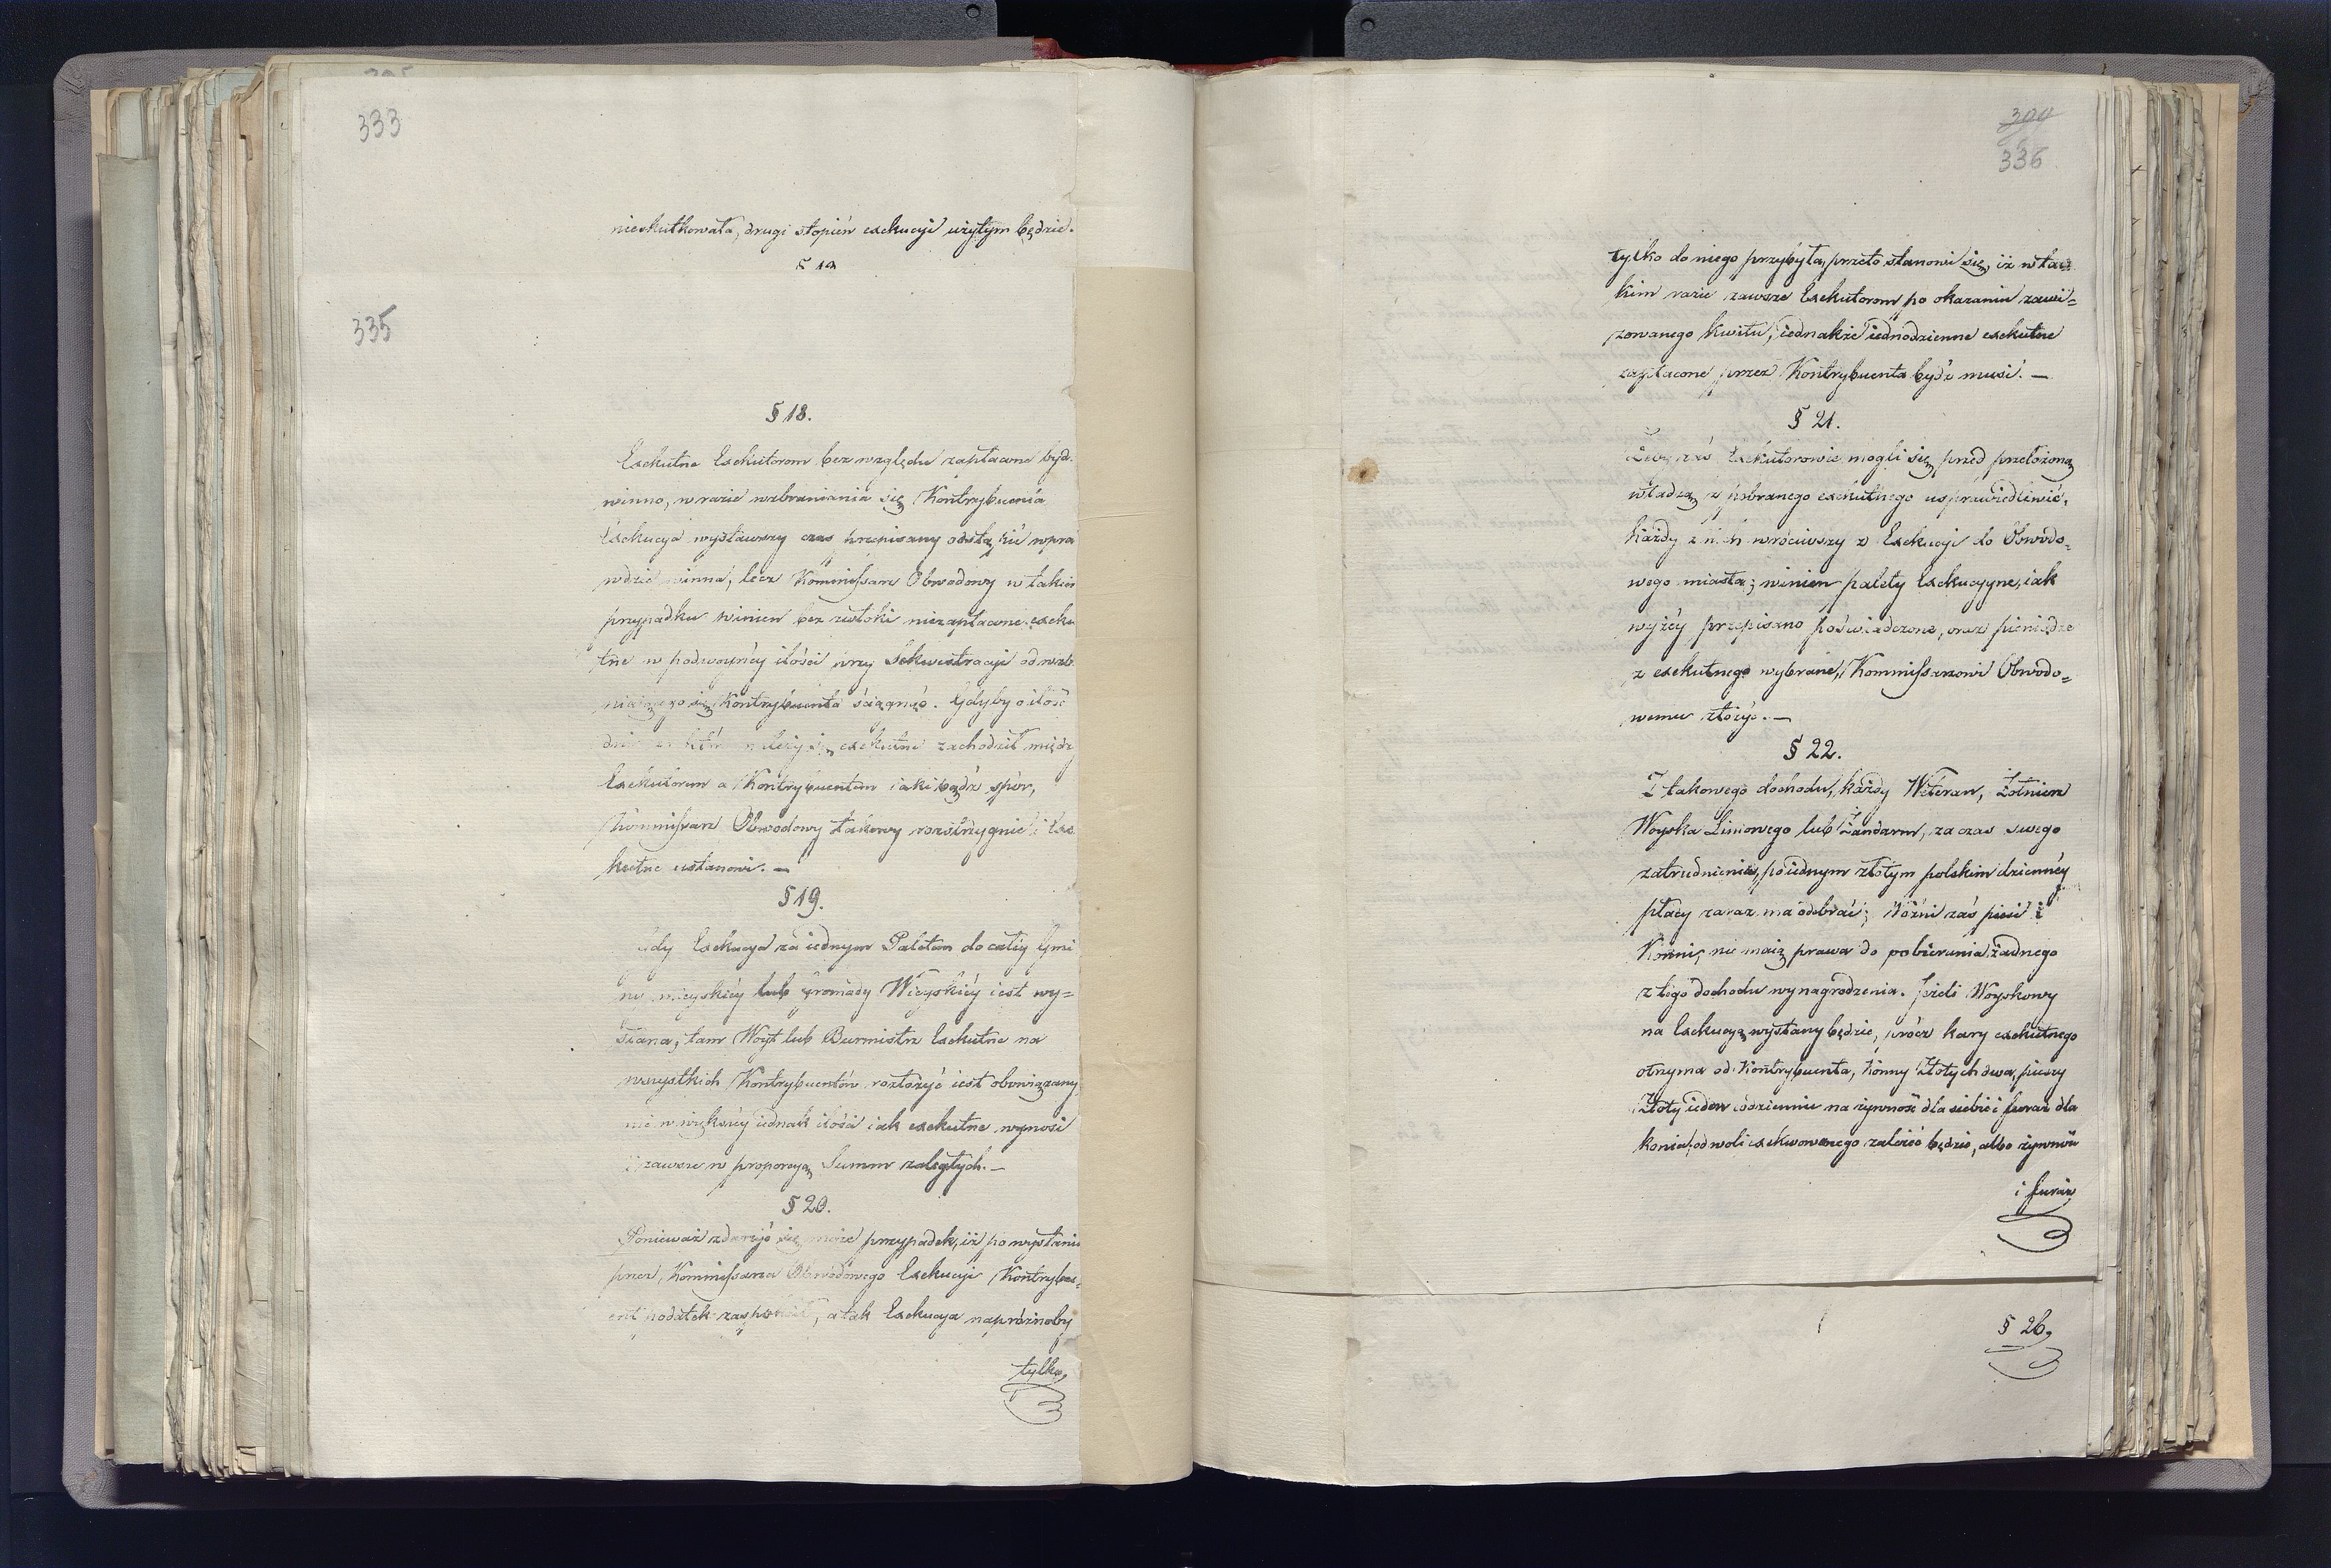 333
nieskutkowała, drugi stopień exekucyi użytym będzie.
335
§ 18.
Exekutne Exekutorom bez względu zapłacone bydź
winno, w razie wzbraniania się Kontrybuenta
Exekucya wystawszy czas przepisany odstąpić wpra
wdzie winna, lecz Kommissarz Obwodowy w takim
przypadku winien bez zwłoki niezapłacone exeku
tne w podwoynéy ilości przy Sekwestracyi od wzb
niaiącego się Kontrybuenta ściągnąć. Gdyby o ilość
dni za które należy się exekutne zachodził międz
Exekutorem a Kontrybuentem iaki bądź spór,
Kommissarz Obwodowy takowy rozstrzygnie i Exe
kutne ustanowi. —
§ 19.
Gdy Exekucya za iednym Paletem do całéy Gmi
ny mieyskiéy lub gromady Wieyskiéy iest wy=
słana, tam Woyt lub Burmistrz Exekutne na
wszystkich Kontrybuentów rozłożyć iest obowiązany,
nie w większéy iednak ilości iak exekutne wynosi
i zawsze w proporcyą Summ zaległych. —
§ 20.
Ponieważ zdarzyć się może przypadek, iż po wysłaniu
przez Kommissarza Obwodowego Exekucyi Kontrybu=
ent podatek zaspokoił, a tak Exekucya napróżnoby
tylko,
300
336
tylko do niego przybyła, przeto stanowi się, iż w ta=
kim razie zawsze Exekutorom po okazaniu zawi=
zowanego kwitu, iednakże iednodzienne exekutne
zapłacone przez Kontrybuenta bydź musi. —
§ 21.
Żeby zaś Exekutorowie mogli się przed przełożoną
władzą z pobranego exekutnego usprawiedliwić,
każdy z nich wróciwszy z Exekucyi do Obwodo=
wego miasta; winien palety Exekucyyne, iak
wyżéy przepisano poświadczone, oraz pieniądze
z exekutnego wybrane, Kommissarzowi Obwodo=
wemu złożyć. —
§ 22.
Z takowego dochodu, każdy Weteran, Żołnierz
Woyska Liniowego lub Żandarm, za czas swego
zatrudnienia, po iednym złotym polskim dziennéy
płacy zaraz ma odebrać; Woźni zaś piesi i
Konni, nie maią prawa do pobierania żadnego
z tego dochodu wynagrodzenia. Jeżeli Woyskowy
na Exekucyą wysłany będzie, prócz kary exekutnego
otrzyma od Kontrybuenta, konny Złotych dwa, pieszy
Złoty ieden codziennie na żywność dla siebie i furaż dla
konia; od woli exekwowanego zależeć będzie, albo żywność
i furaż
§ 26,